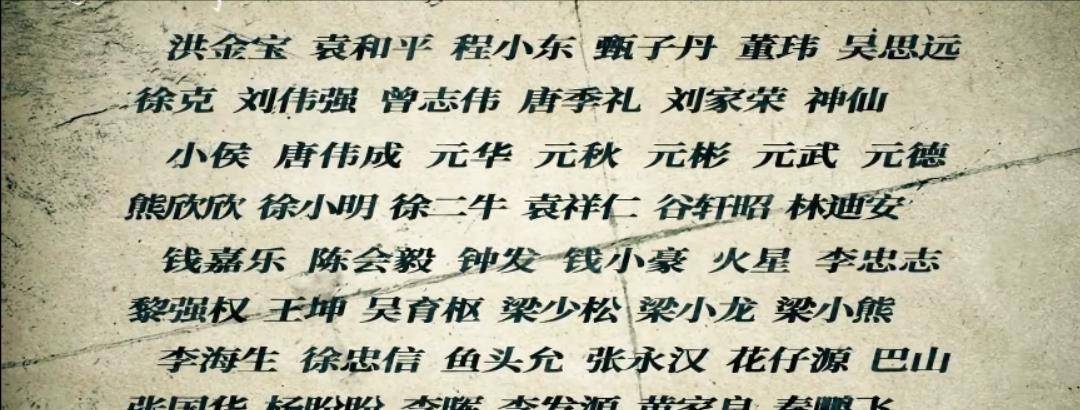 洪金宝 袁和平 程小东 甄子丹 董玮 吴思远
徐克 刘伟强 曾志伟 唐季礼 刘家荣 神仙
小侯 唐伟成 元华 元秋 元彬 元武 元德
熊欣欣 徐小明 徐二牛 袁祥仁 谷轩昭 林迪安
钱嘉乐 陈会毅 钟发 钱小豪 火星 李忠志
黎强权 王坤 吴育枢 梁少松 梁小龙 梁小熊
李海生 徐忠信 鱼头允 张永汉 花仔源 巴山
张国华 杨盼盼 李晖 李发源 黄家良 秦鹏飞